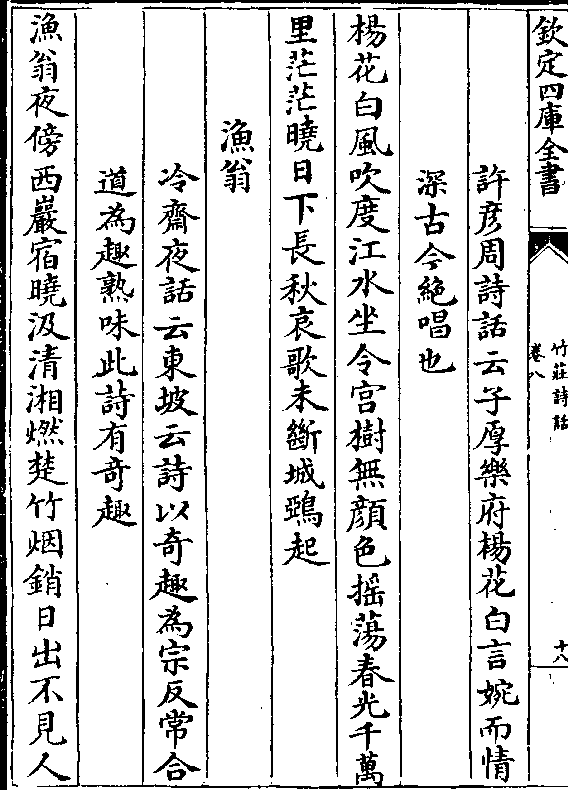 欽定四庫全書
竹莊詩話
卷八
十八
許彦周詩話云子厚樂府楊花白言婉而情
深古今絶唱也
楊花白風吹度江水坐令宫樹無顔色摇蕩春光千萬
里茫茫曉日下長秋哀歌未斷城鴉起
漁翁
冷齋夜話云東坡云詩以奇趣為宗反常合
道為趣熟味此詩有奇趣
漁翁夜傍西巖宿曉汲清湘燃楚竹烟銷日出不見人